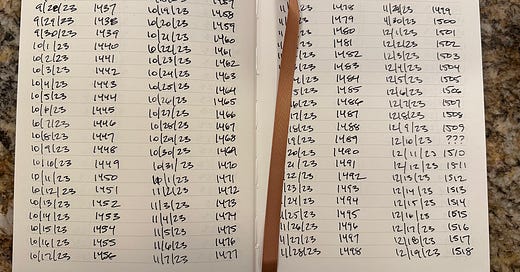 9/28/23 1437
9/29/23 1438
9/30/23 1439
10/1/23 1440
10/2/23 1441
10/3/23 1442
10/4/23 1443
10/5/23 1444
10/6/23 1445
10/7/23 1446
10/8/23 1447
10/9/23 1448
10/10/23 1449
10/11/23 1450
10/12/23 1451
10/13/23 1452
10/14/23 1453
10/15/23 1454
10/16/23 1455
10/17/23 1456
10/19/23 1458
10/20/23 1459
10/21/23 1460
10/22/23 1461
10/23/23 1462
10/24/23 1463
10/25/23 1464
10/26/23 1465
10/27/23 1466
10/28/23 1467
10/29/23 1468
10/30/23 1469
10/31/23 1470
11/1/23 1471
11/2/23 1472
11/3/23 1473
11/4/23 1474
11/5/23 1475
11/6/23 1476
11/7/23 1477
1478
1479
1480
1481
1482
1483
1484
1485
1486
1487
1488
1489
1490
1491
1492
1493
1494
1495
11/26/23 1496
11/27/23 1497
11/28/23 1498
11/29/23 1499
11/30/23 1500
12/1/23 1501
12/2/23 1502
12/3/23 1503
12/4/23 1504
12/5/23 1505
12/6/23 1506
12/7/23 1507
12/8/23 1508
12/9/23 1509
12/10/23 ???
12/11/23 1510
12/12/23 1511
12/13/23 1512
12/14/23 1513
12/15/23 1514
12/16/23 1515
12/17/23 1516
12/18/23 1517
12/19/23 1518